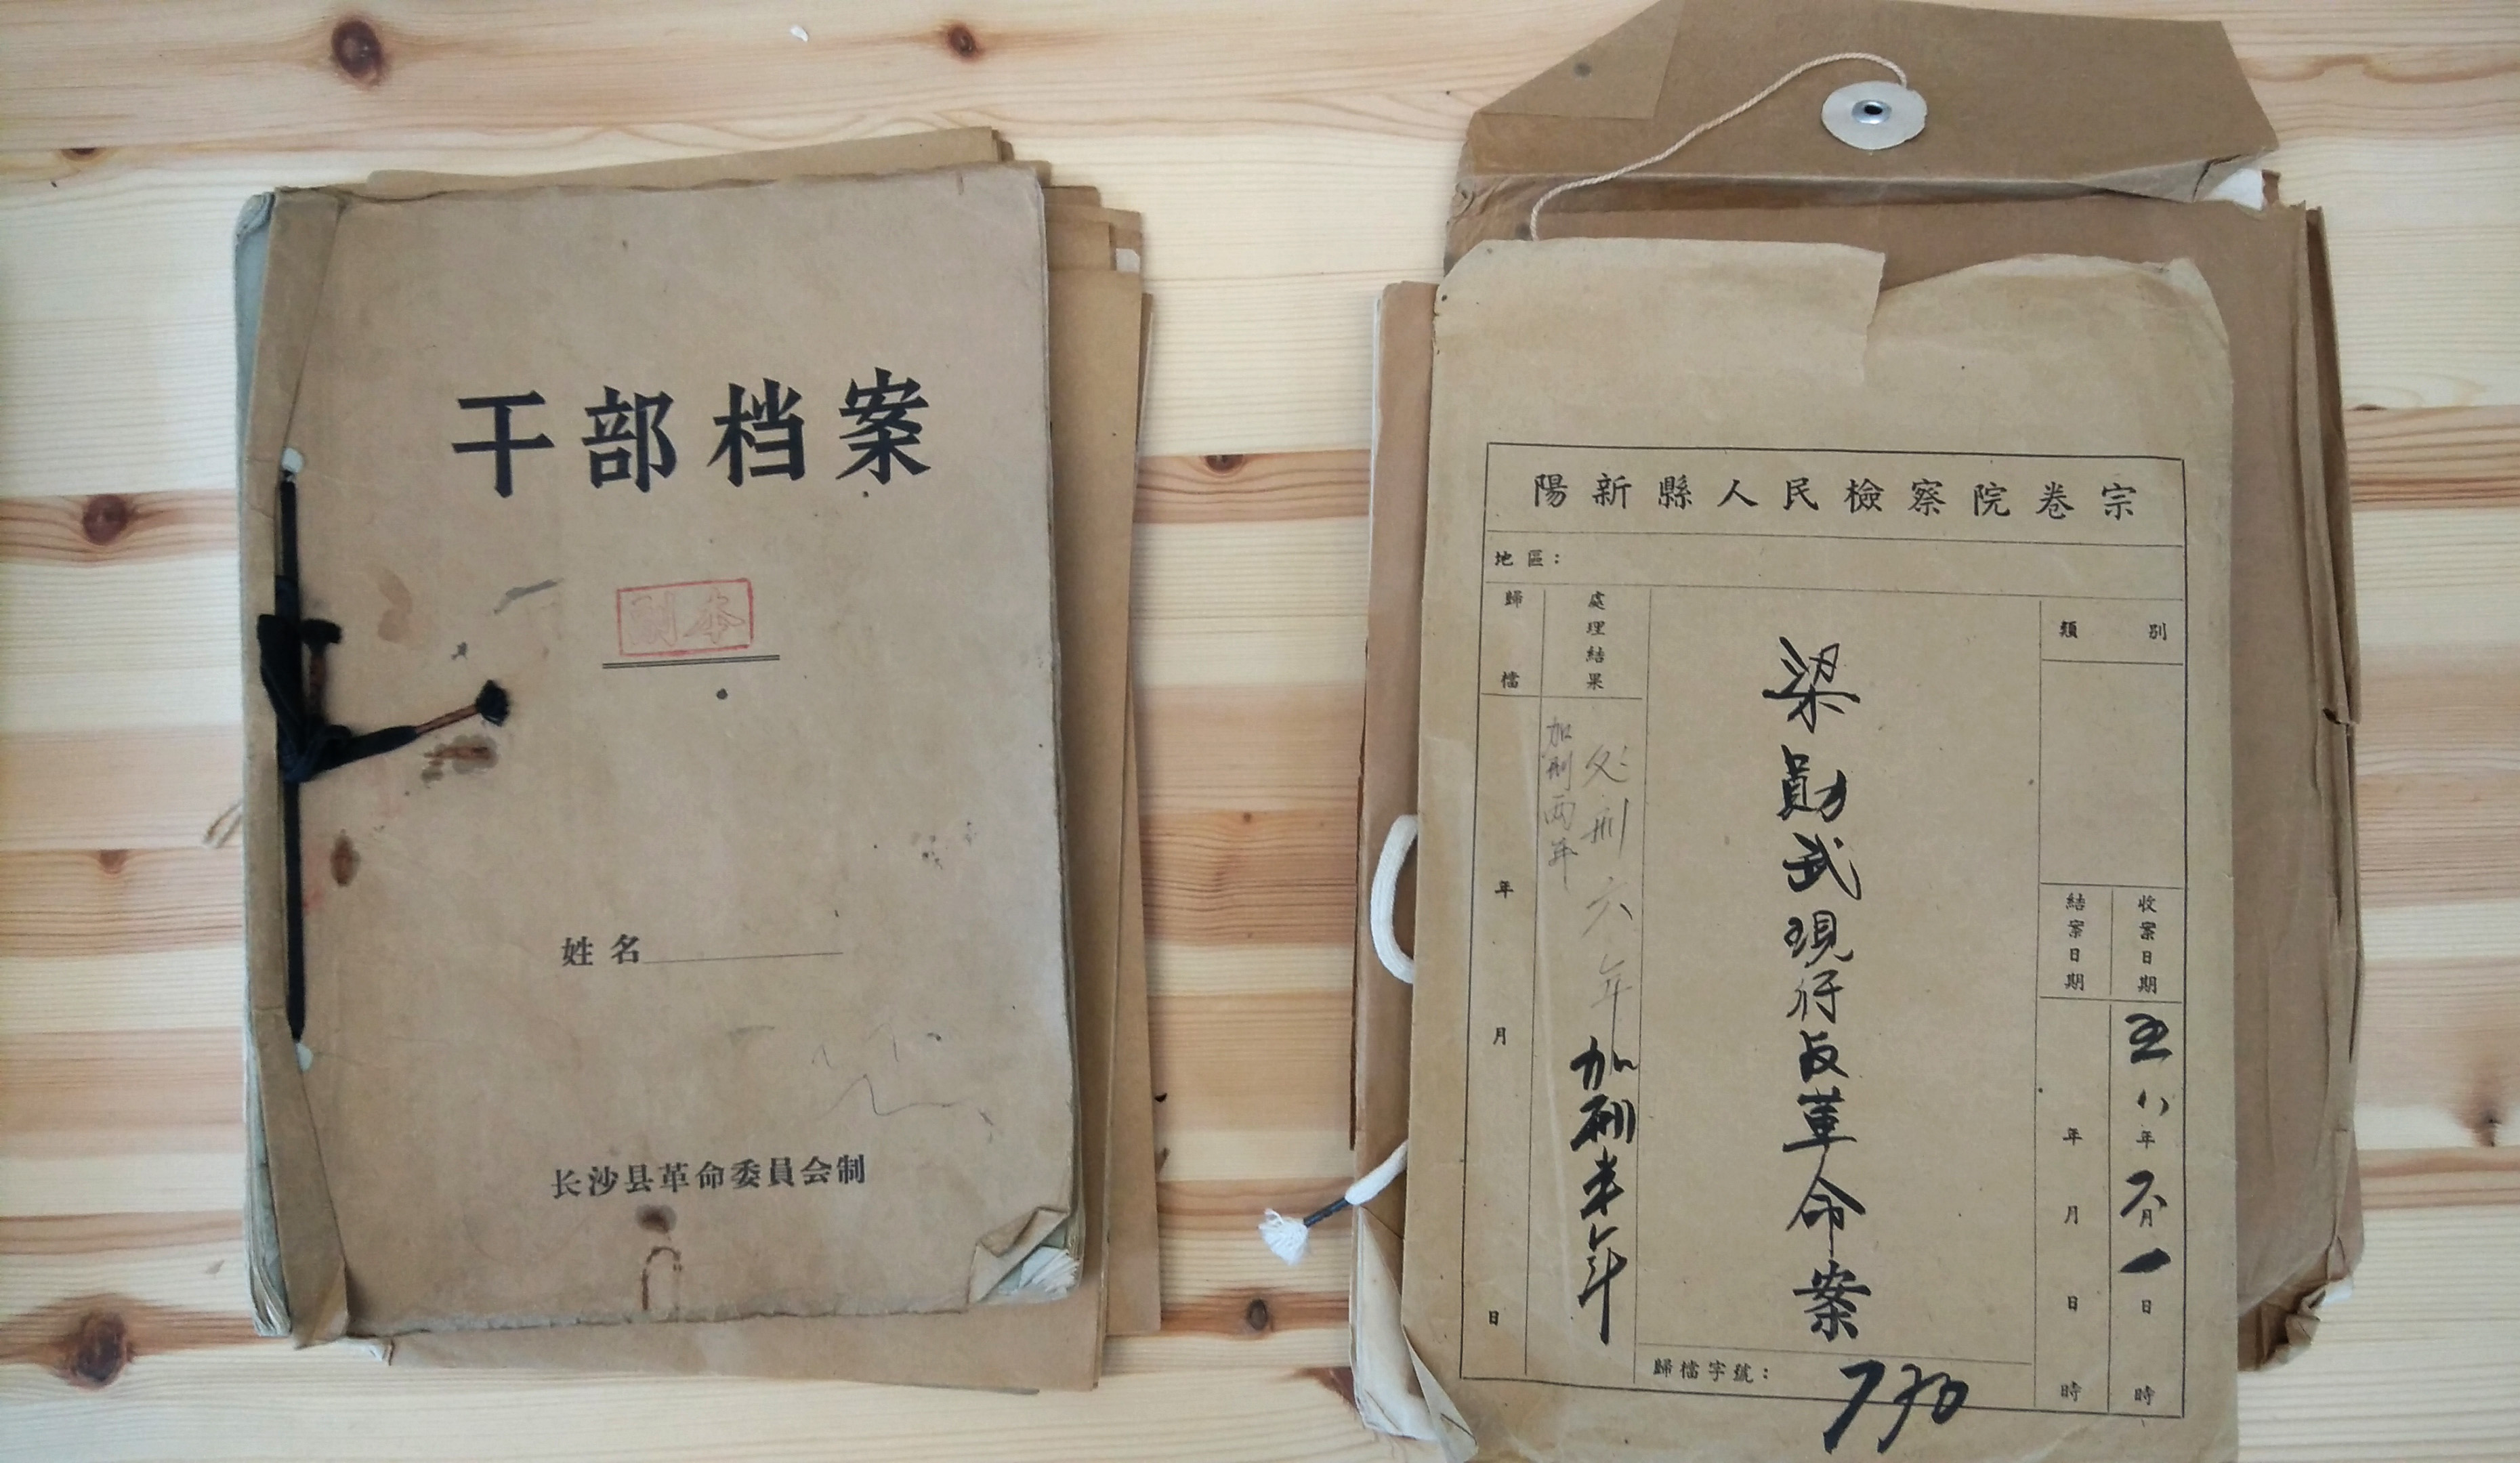 干部档案
副本
姓名
长沙县革命委員会制
陽新縣人民檢察院卷宗
地區：
類別
收案日期
五八年 月一日時
結案日期
年月日時
梁勛武現行反革命案
處理結果
处刑六年
加刑两年
加刑半年
歸檔
年月日
歸檔字號：730